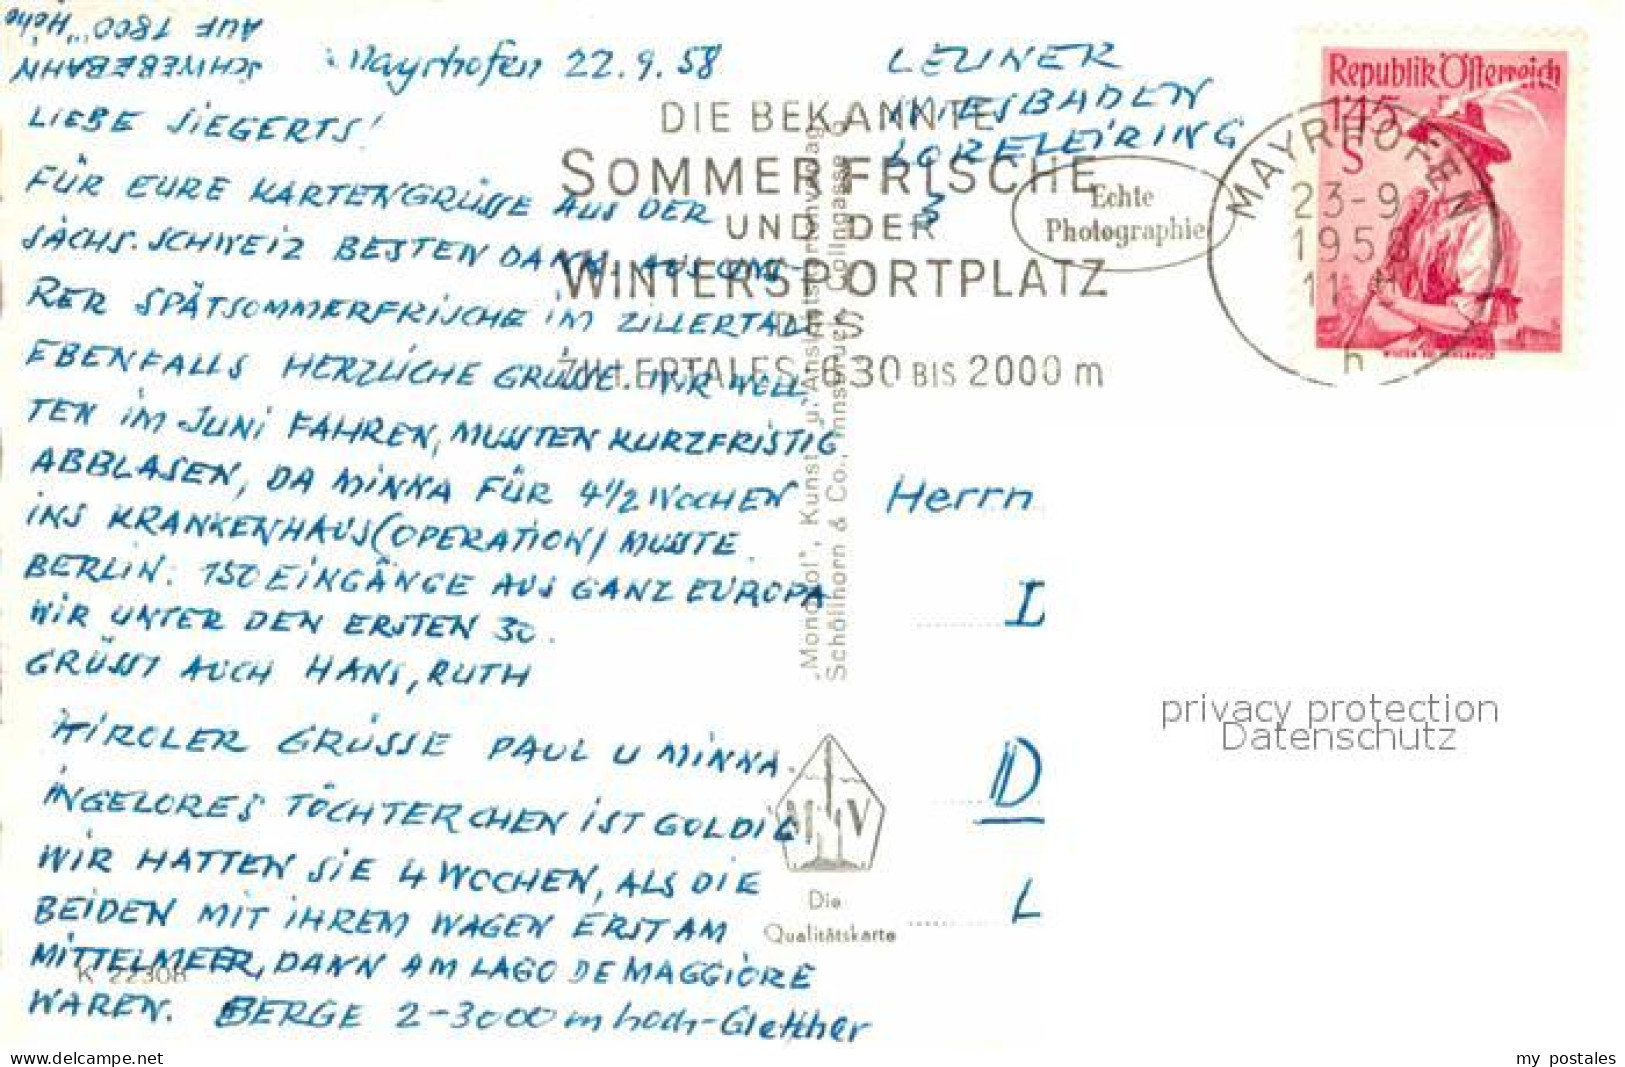 SCHWEBEBAHN
AUF 1800 m Höhe
Mayrhofen 22.9.58
LIEBE SIEGERTS!
FÜR EURE KARTENGRÜSSE AUS DER
SÄCHS. SCHWEIZ BESTEN DANK. AUS UNS-
RER SPÄTSOMMERFRISCHE IM ZILLERTAL
EBENFALLS HERZLICHE GRÜSSE. WIR WOLL-
TEN IM JUNI FAHREN, MUSSTEN KURZFRISTIG
ABBLASEN, DA MINNA FÜR 4 1/2 WOCHEN
INS KRANKENHAUS (OPERATION) MUSSTE.
BERLIN: 150 EINGÄNGE AUS GANZ EUROPA
WIR UNTER DEN ERSTEN 30.
GRÜSST AUCH HANS, RUTH
TIROLER GRÜSSE PAUL U MINNA.
INGELORES TÖCHTERCHEN IST GOLDIG
WIR HATTEN SIE 4 WOCHEN, ALS DIE
BEIDEN MIT IHREM WAGEN ERST AM
MITTELMEER, DANN AM LAGO DE MAGGIORE
WAREN. BERGE 2-3000 m hoch-Gletscher
K 22308
LEUNER
WIESBADEN
LORELEIRING
3
DIE BEKANNTE
SOMMERFRISCHE
UND DER
WINTERSPORTPLATZ
DES
ZILLERTALES 630 BIS 2000 m
Echte
Photographie
MAYRHOFEN
23-9
1958
11
h
Republik Österreich
1'45
S
"Monopol", Kunst u. Ansichtskartenverlag
Schöllhorn & Co., Innsbruck, Colingasse 9
Herrn
D
L
MV
Die
Qualitätskarte
privacy protection
Datenschutz
www.delcampe.net
my_postales